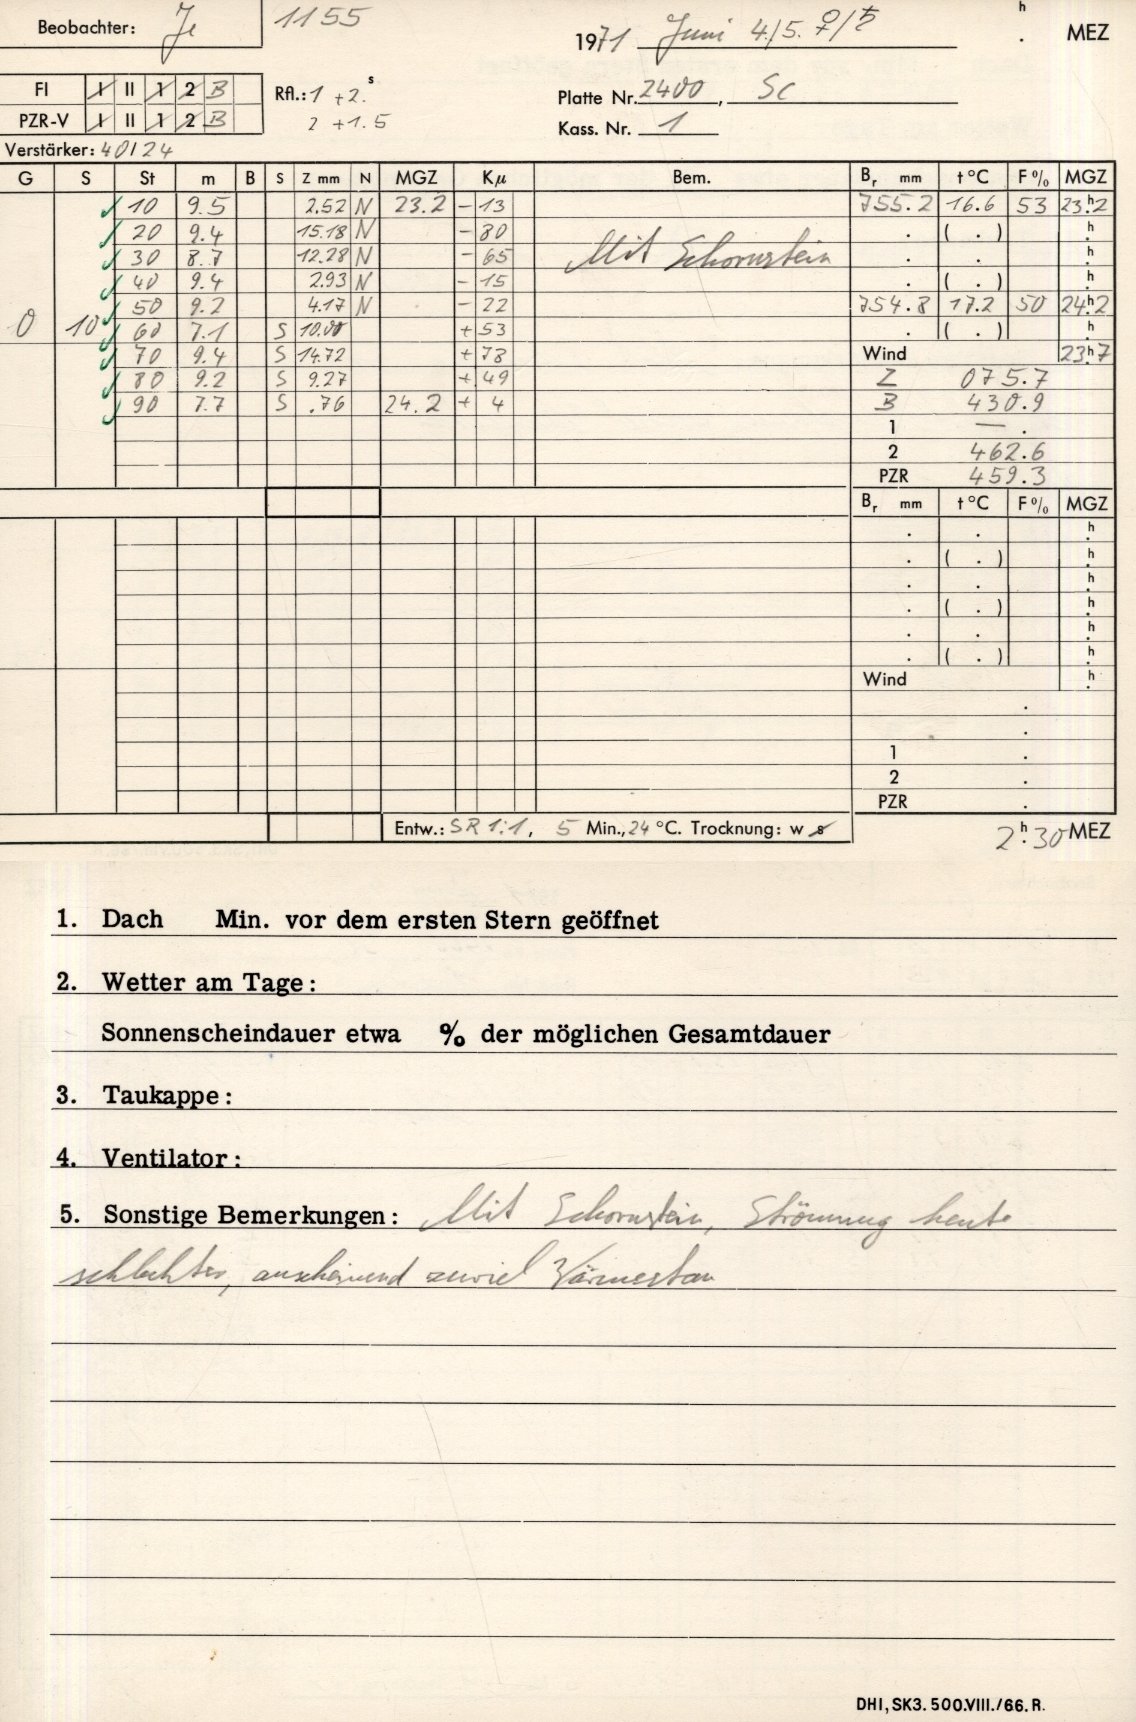 Beobachter: Je 1155 h
1971 Juni 4./5. ♀/♄ . MEZ
FI I II 1 2 B Rfl.: 1 +2.s
PZR-V I II 1 2 B 2 +1.5
Platte Nr. 2400, Sc
Kass. Nr. 1
Verstärker: 40/24
G S St m B S Z mm N MGZ Kμ Bem. Br mm t °C F % MGZ
10 9.5 2.52 N 23.2 - 13 755.2 16.6 53 23h.2
20 9.4 15.18 N - 80 . ( . ) h.
30 8.7 12.28 N - 65 Mit Schornstein . . h.
40 9.4 2.93 N - 15 . ( . ) h.
50 9.2 4.17 N - 22 754.8 17.2 50 24h.2
0 10 60 7.1 S 10.00 + 53 . ( . ) h.
70 9.4 S 14.72 + 78 Wind 23h.7
80 9.2 S 9.27 + 49 Z 075.7
90 7.7 S .76 24.2 + 4 B 430.9
1 — .
2 462.6
PZR 459.3
Br mm t °C F % MGZ
. . h.
. ( . ) h.
. . h.
. ( . ) h.
. . h.
. ( . ) h.
Wind h.
.
.
1 .
2 .
PZR .
Entw.: SR 1:1, 5 Min., 24 °C. Trocknung: w s
2h.30 MEZ
1. Dach Min. vor dem ersten Stern geöffnet
2. Wetter am Tage:
Sonnenscheindauer etwa % der möglichen Gesamtdauer
3. Taukappe:
4. Ventilator:
5. Sonstige Bemerkungen: Mit Schornstein, Strömung heute
schlechter, anscheinend zuviel Wärmestau
DHI, SK3. 500.VIII./66. R.